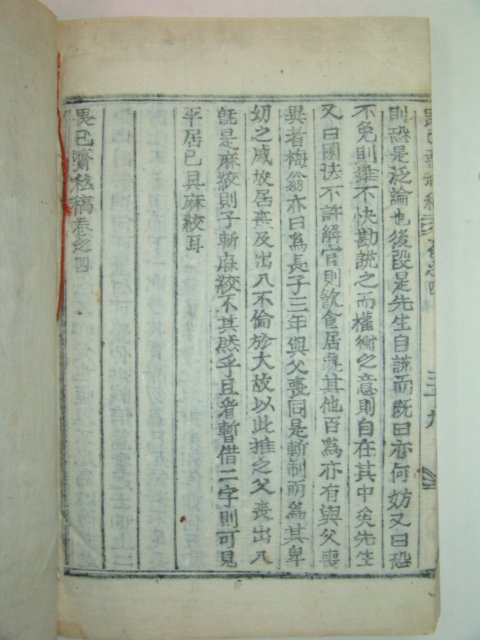 則恐是泛論也後段是先生自說而既曰亦何妨又曰恐
不免則雖不快勘說之而權衡之意則自在其中矣先生
又曰國法不許解官則飲食居處其他百爲亦有與父喪
異者梅翁亦曰爲長子三年與父喪同是斬制而爲其卑
幼之戚故居處及出入不倫於大故以此推之父喪出入
旣是麻絞則子斬麻絞不其然乎且看暫借二字則可見
平居已具麻絞耳
畏己齋秘稿卷之四